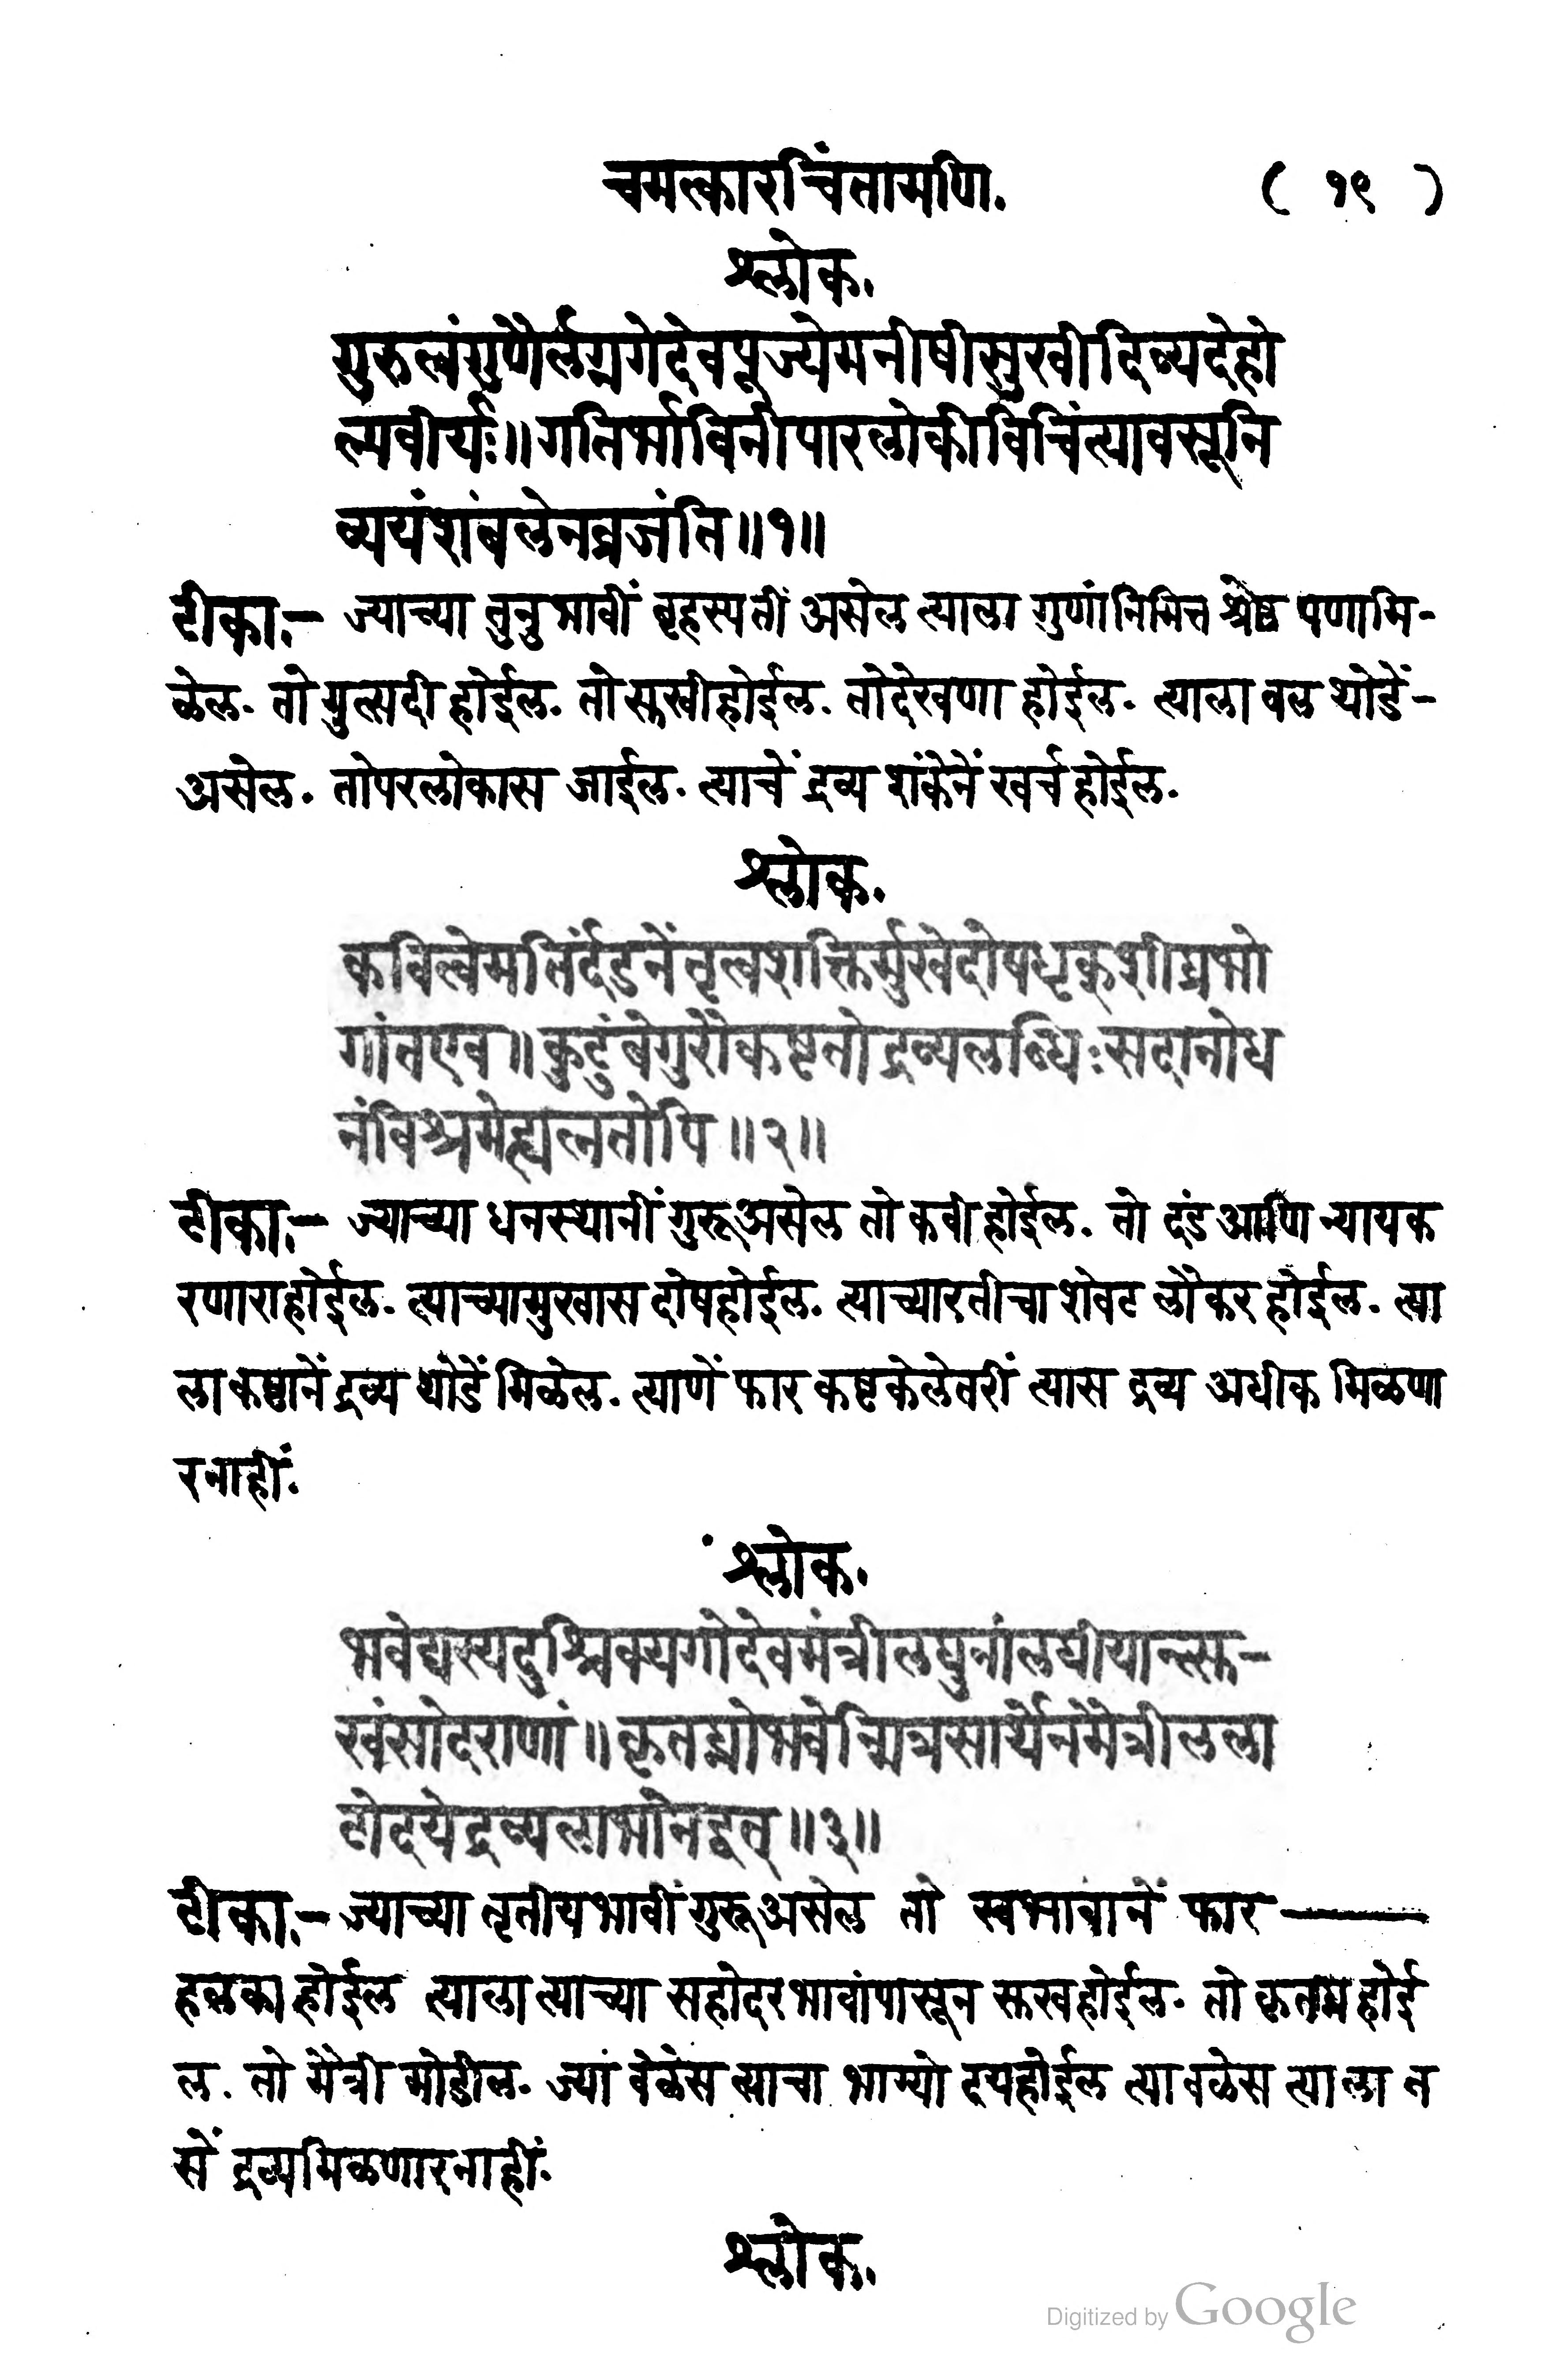 चमत्कारचिंतामणि. ( १९ )
श्लोक.
गुरुत्वंगुणैर्लग्नगेदेवपूज्येमनीषीसुखीदिव्यदेहो
ल्पवीर्यः॥गतिर्भाविनीपारलोकीविचिंत्यावसूनि
व्ययंशंबलेनव्रजंति॥१॥
टीका.— ज्याच्या तुनुभावीं बृहस्पती असेल त्याला गुणांनिमित्त श्रेष्ठ पणामि-
ळेल. तो युत्सदी होईल. तोसुखीहोईल. तोदेखणा होईल. त्याला बल थोडें-
असेल. तोपरलोकास जाईल. त्याचें द्रव्य शंकेनें खर्च होईल.
श्लोक.
कवित्वेमतिर्दंडनेंतृत्वशक्तिर्मुखेदोषधृक्शीघ्रभो
गांतएव॥कुटुंबेगुरौकष्टतोद्रव्यलब्धिःसदानोध
नंविश्रमेद्यत्नतोपि॥२॥
टीका.— ज्याच्या धनस्थानीं गुरूअसेल तो कवी होईल. तो दंड आणि न्यायक
रणाराहोईल. त्याच्यामुखास दोषहोईल. त्याच्यारतीचा शेवट लौकर होईल. त्या
ला कष्टानें द्रव्य थोडें मिळेल. त्याणें फार कष्टकेलेवरीं त्यास द्रव्य अधीक मिळणा
रनाहीं.
श्लोक.
भवेद्यस्यदुश्चिक्यगोदेवमंत्रीलघुनांलघीयान्सु-
खंसोदराणां॥कृतघ्नोभवेन्मित्रसार्थेनमैत्रीलला
टोदयेद्रव्यलाभोनद्वत्॥३॥
टीका.— ज्याच्या तृतीयभावीं गुरूअसेल तो स्वभावानें फार ——
हलका होईल त्याला त्याच्या सहोदरभावांपासून सुखहोईल. तो कृतघ्न होई
ल. तो मैत्री मोडील. ज्या वेळेस त्याचा भाग्यो दयहोईल त्यावळेस त्याला त
सें द्रव्यमिळणारनाहीं.
श्लोक.
Digitized by Google